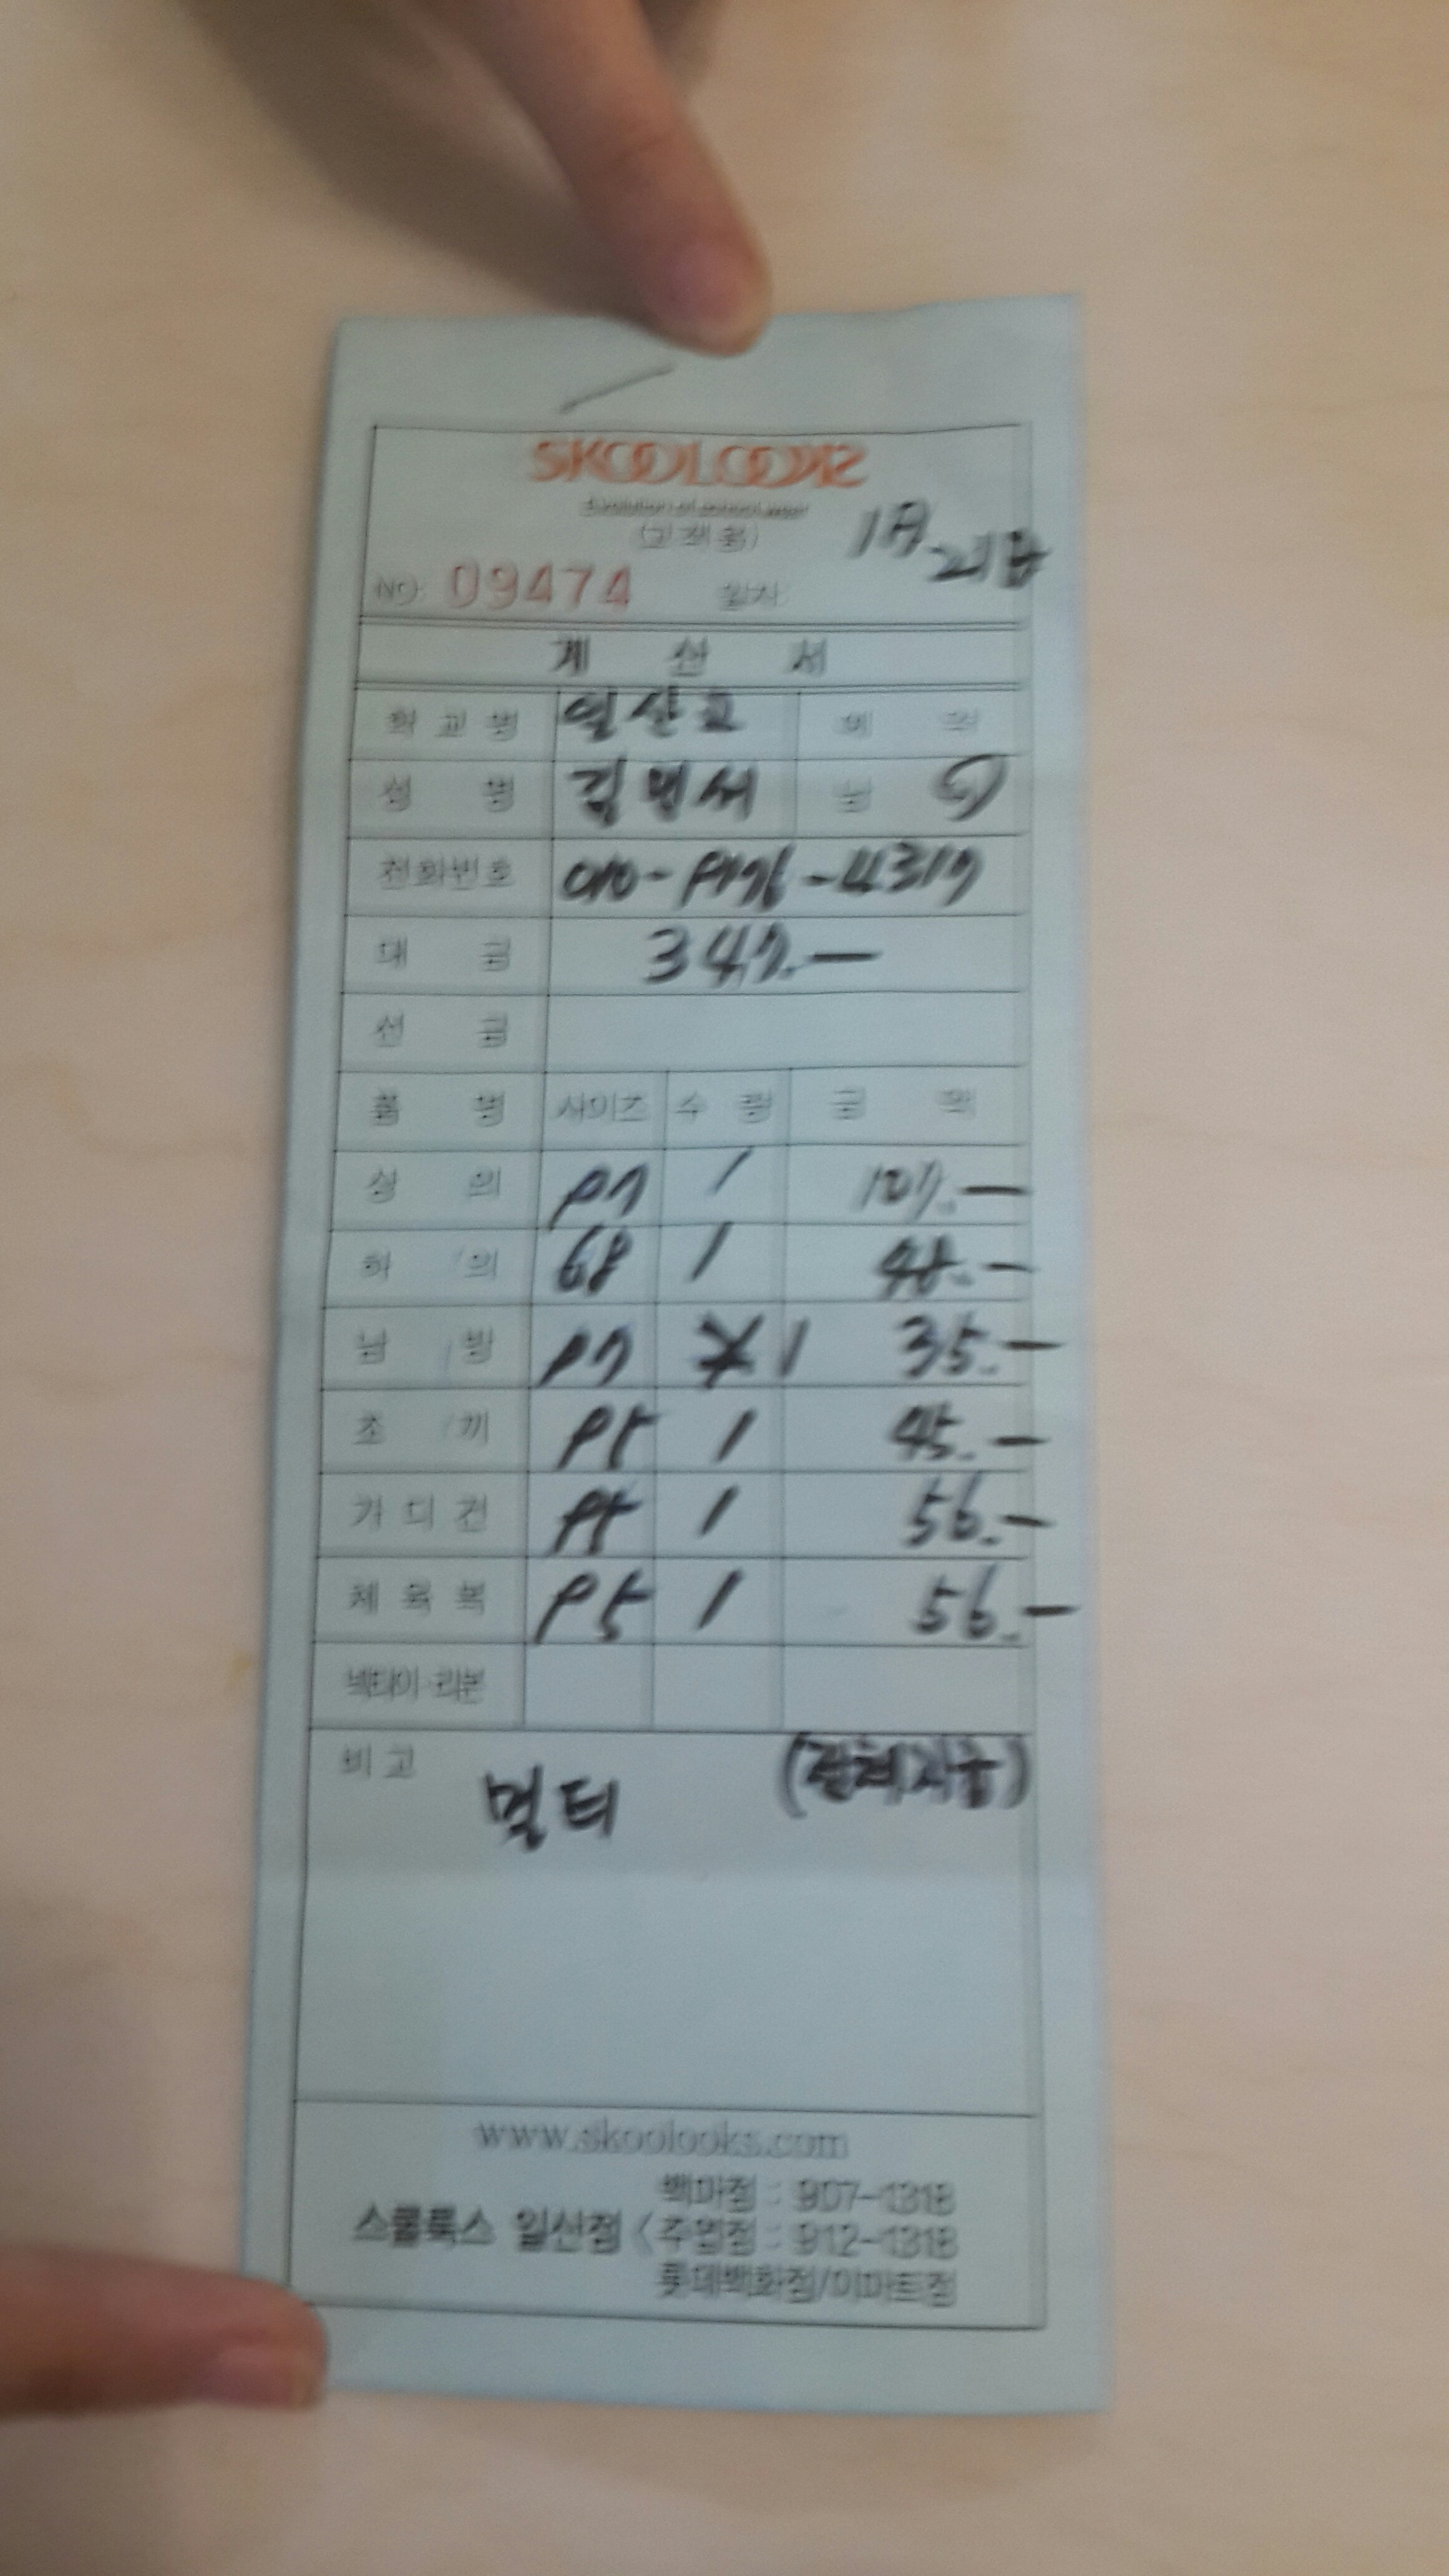 SKOOLOOKS
Evolution of school wear
(고객용)
1月 21日
NO: 09474 일자:
계 산 서
학 교 명 일산고 예 약
성 명 김범서 남
전화번호
대 금 347.—
선 금
품 명 사이즈 수 량 금 액
상 의 97 1 107.—
하 의 68 1 48.—
남 방 97 1 35.—
조 끼 95 1 45.—
가 디 건 95 1 56.—
체 육 복 95 1 56.—
넥타이·리본
비 고
멀티
www.skoolooks.com
백마점 : 907-1318
스쿨룩스 일산점 < 주엽점 : 912-1318
롯데백화점/이마트점